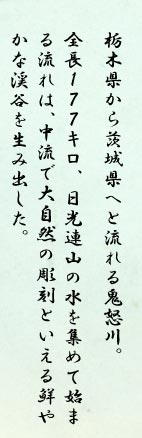 栃木県から茨城県へと流れる鬼怒川。
全長177キロ、日光連山の水を集めて始ま
る流れは、中流で大自然の彫刻といえる鮮や
かな渓谷を生み出した。